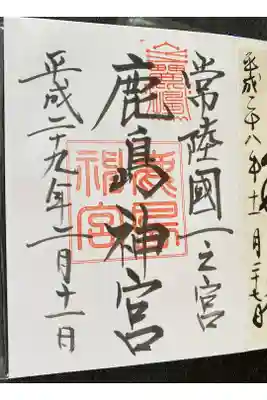 常陸國一之宮
鹿島神宮
鹿島神宮
平成二十九年二月十一日
平成二十八年十一月二十七日